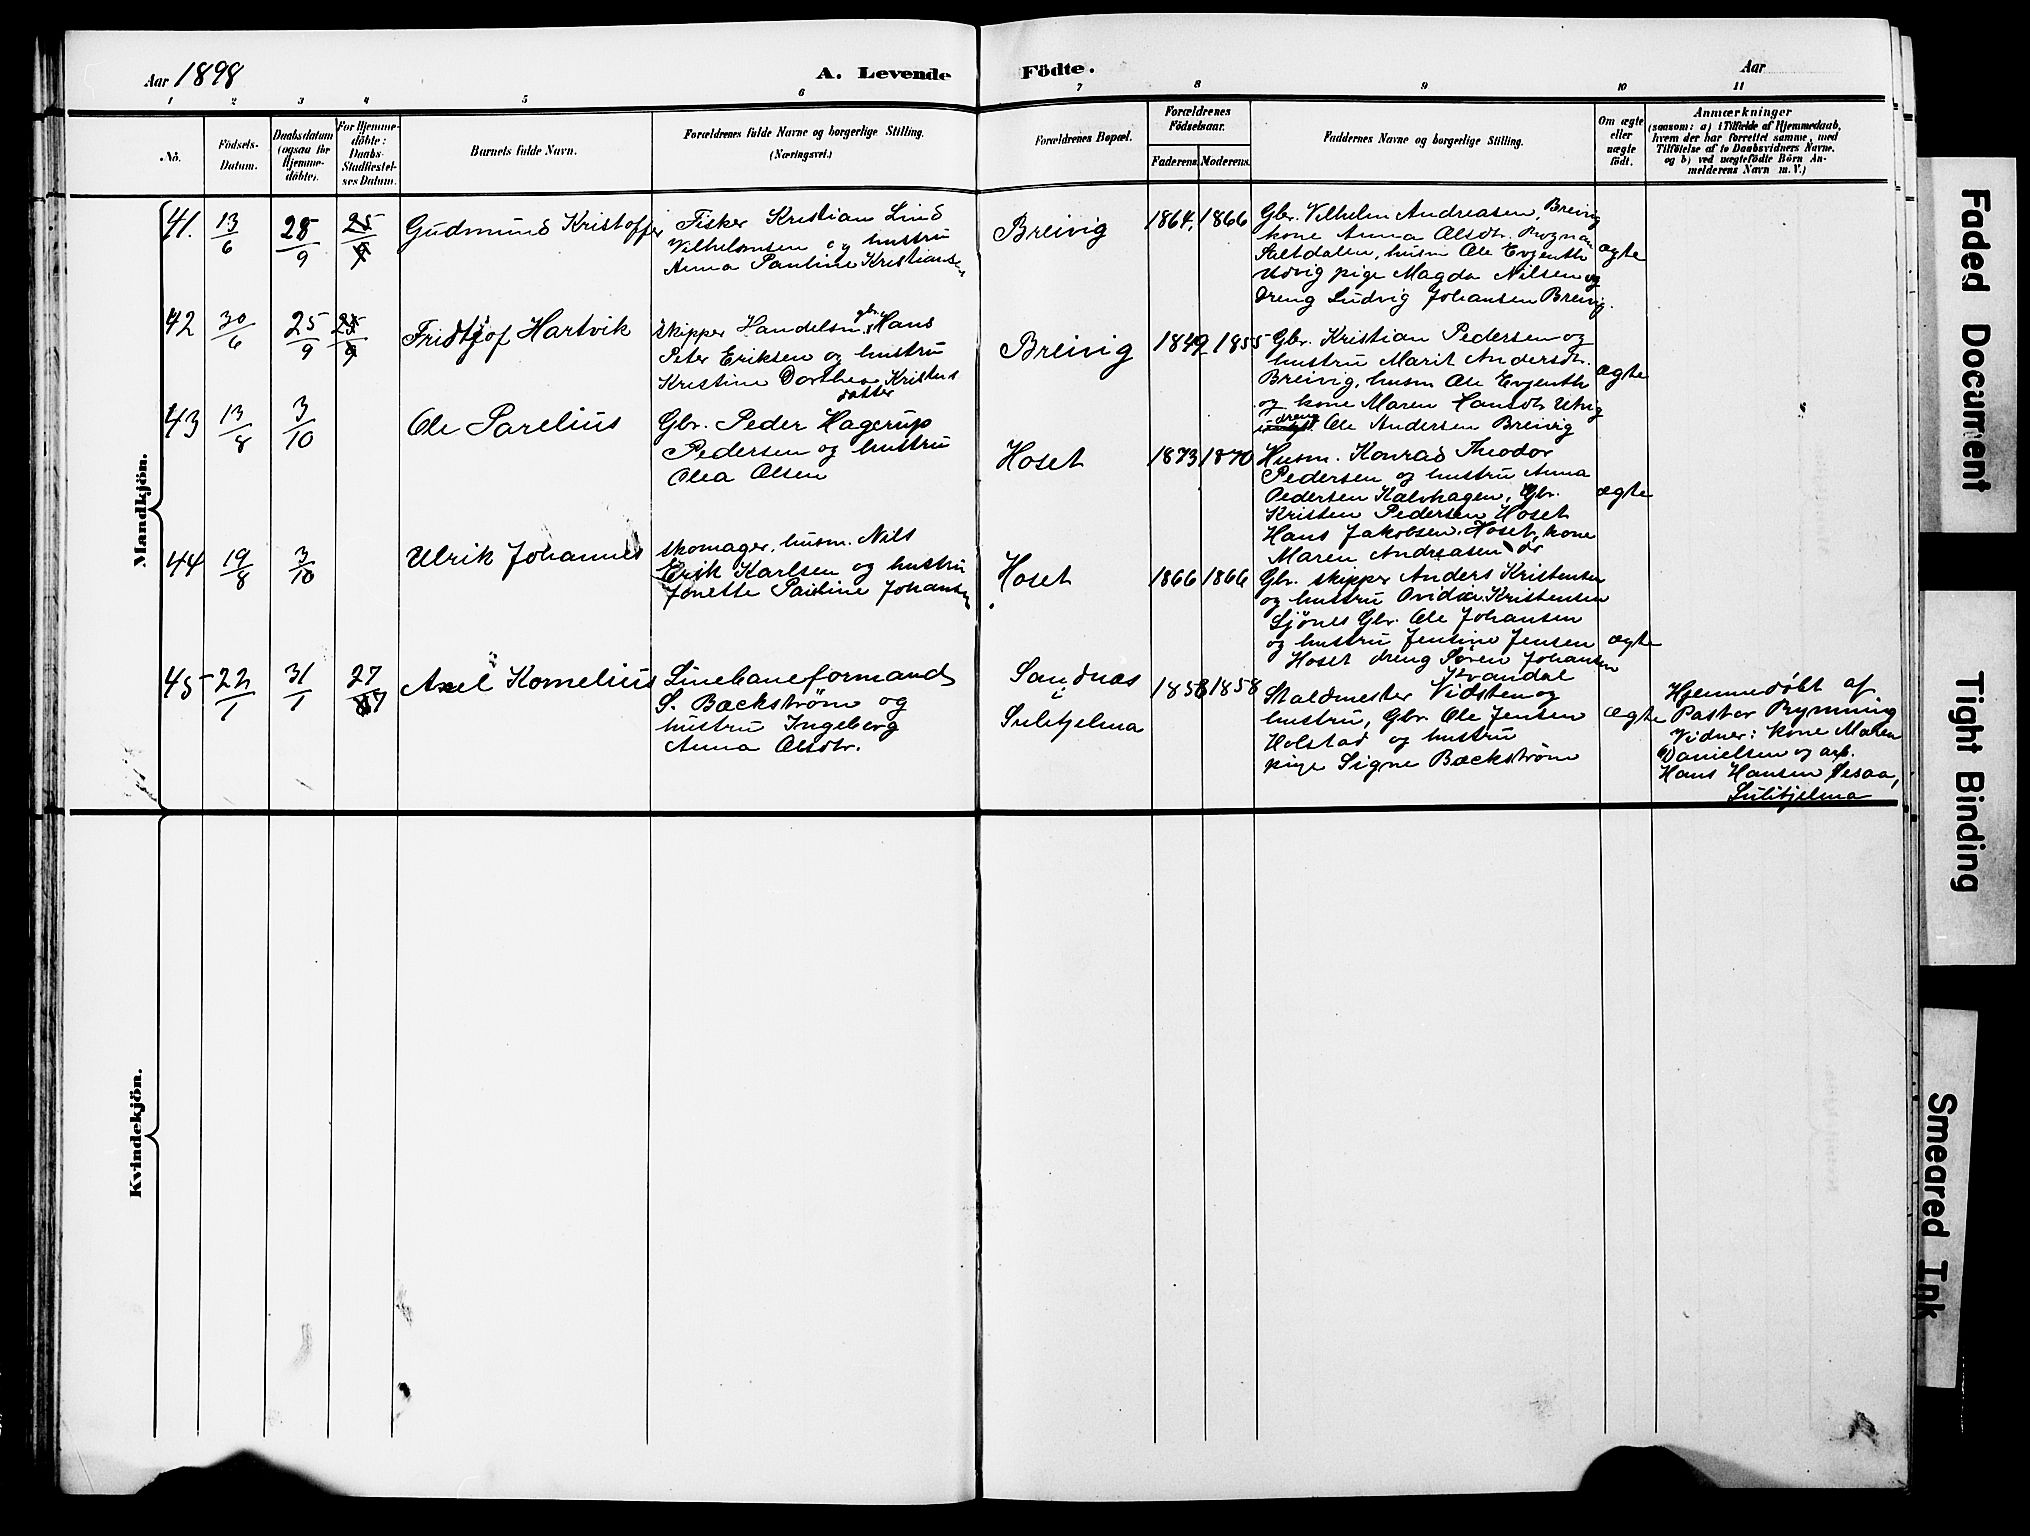 Aar 1898
A. Levende Födte.
Aar
1 2 3 4 5 6 7 8 9 10 11
No.
Födsels-Datum.
Daabsdatum (ogsaa for Hjemme-döbte).
For Hjemme-döbte: Daabs-Stadfæstel-ses Datum.
Barnets fulde Navn.
Forældrenes fulde Navne og borgerlige Stilling.
(Næringsvei.)
Forældrenes Bopæl.
Forældrenes Födselsaar.
Faderens. Moderens.
Faddernes Navne og borgerlige Stilling.
Om ægte eller uægte født.
Anmærkninger
(saasom: a) i Tilfælde af Hjemmedaab,
hvem der har forrettet samme, med
Tilföielse af to Daabsvidners Navne.
og b) ved uægtefödte Börn An-
melderens Navn m. V.)
Mandkjön.
41. 13/6 25/9 25/9 Gudmund Kristoffer
Fisker Kristian Lind
Vilhelmsen og hustru
Anna Pauline Kristiansen
Breivig 1864. 1866
Gbr. Vilhelm Andreasen, Breivig
kone Anna Olsdtr. Rognan
Saltdalen, husm Ole Evjenth
Utvig pige Magda Nilsen og
dreng Ludvig Johansen Breivig.
ægte
42 30/6 25/9 25/9 Fridtjof Hartvik
Skipper Handelsm. gbr. Hans
Peter Eriksen og hustru
Kristine Dorthea Kristens
datter
Breivig 1849 1855
Gbr. Kristian Pedersen og
hustru Marit Andersdtr.
Breivig, husm Ole Evjenth
og kone Maren Hansdtr Utvig
dreng Ole Andersen Breivig
ægte
43 13/8 3/10 Ole Parelius
Gbr. Peder Hagerup
Pedersen og hustru
Olea Olsen
Hoset 1873 1870
Husm. Konrad Theodor
Pedersen og hustru Anna
Pedersen Kalvhagen, Gbr.
Kristen Pedersen Hoset
Hans Jakobsen, Hoset, kone
Maren Andreasen do
ægte
44 19/8 3/10 Ulrik Johannes
Skomager, husm. Nils
Erik Karlsen og hustru
Jonette Pauline Johansen
Hoset 1866 1866
Gbr. skipper Anders Kristensen
og hustru Ovidia Kristensen
Sjönes Gbr. Ole Johansen
og hustru Jensine Jensen
Hoset dreng Søren Johansen
Kvandal
ægte
45 22/1 31/1 27/7 Axel Kornelius
Linebaneformand
S. Backstrøm og
hustru Ingeborg
Anna Olsdtr.
Sandnæs
i
Sulitjelma
1858 1858
Staldmester Vidsten og
hustru, Gbr. Ole Jensen
Holstad og hustru
pige Signe Backstrøm
ægte
Hjemmedøbt af
Pastor Rymning
Vidner: kone Maren
Danielsen og arb.
Hans Hansen
Sulitjelma
Kvindekjön.
Faded Document
Tight Binding
Smeared Ink